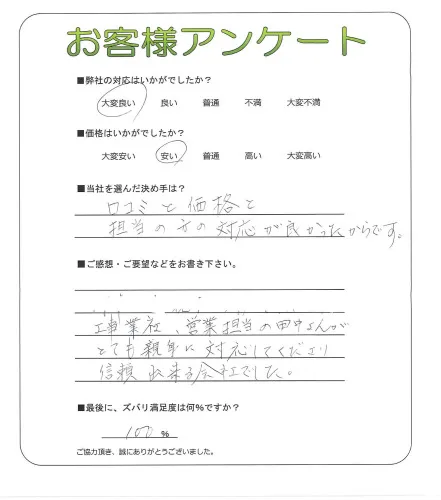 お客様アンケート
■弊社の対応はいかがでしたか？
大変良い 良い 普通 不満 大変不満
■価格はいかがでしたか？
大変安い 安い 普通 高い 大変高い
■当社を選んだ決め手は？
口コミと価格と
担当の方の対応が良かったからです。
■ご感想・ご要望などをお書き下さい。
工事業社、営業担当の田中さんが
とても親身に対応してくださり
信頼出来る会社でした。
■最後に、ズバリ満足度は何%ですか？
100 %
ご協力頂き、誠にありがとうございました。